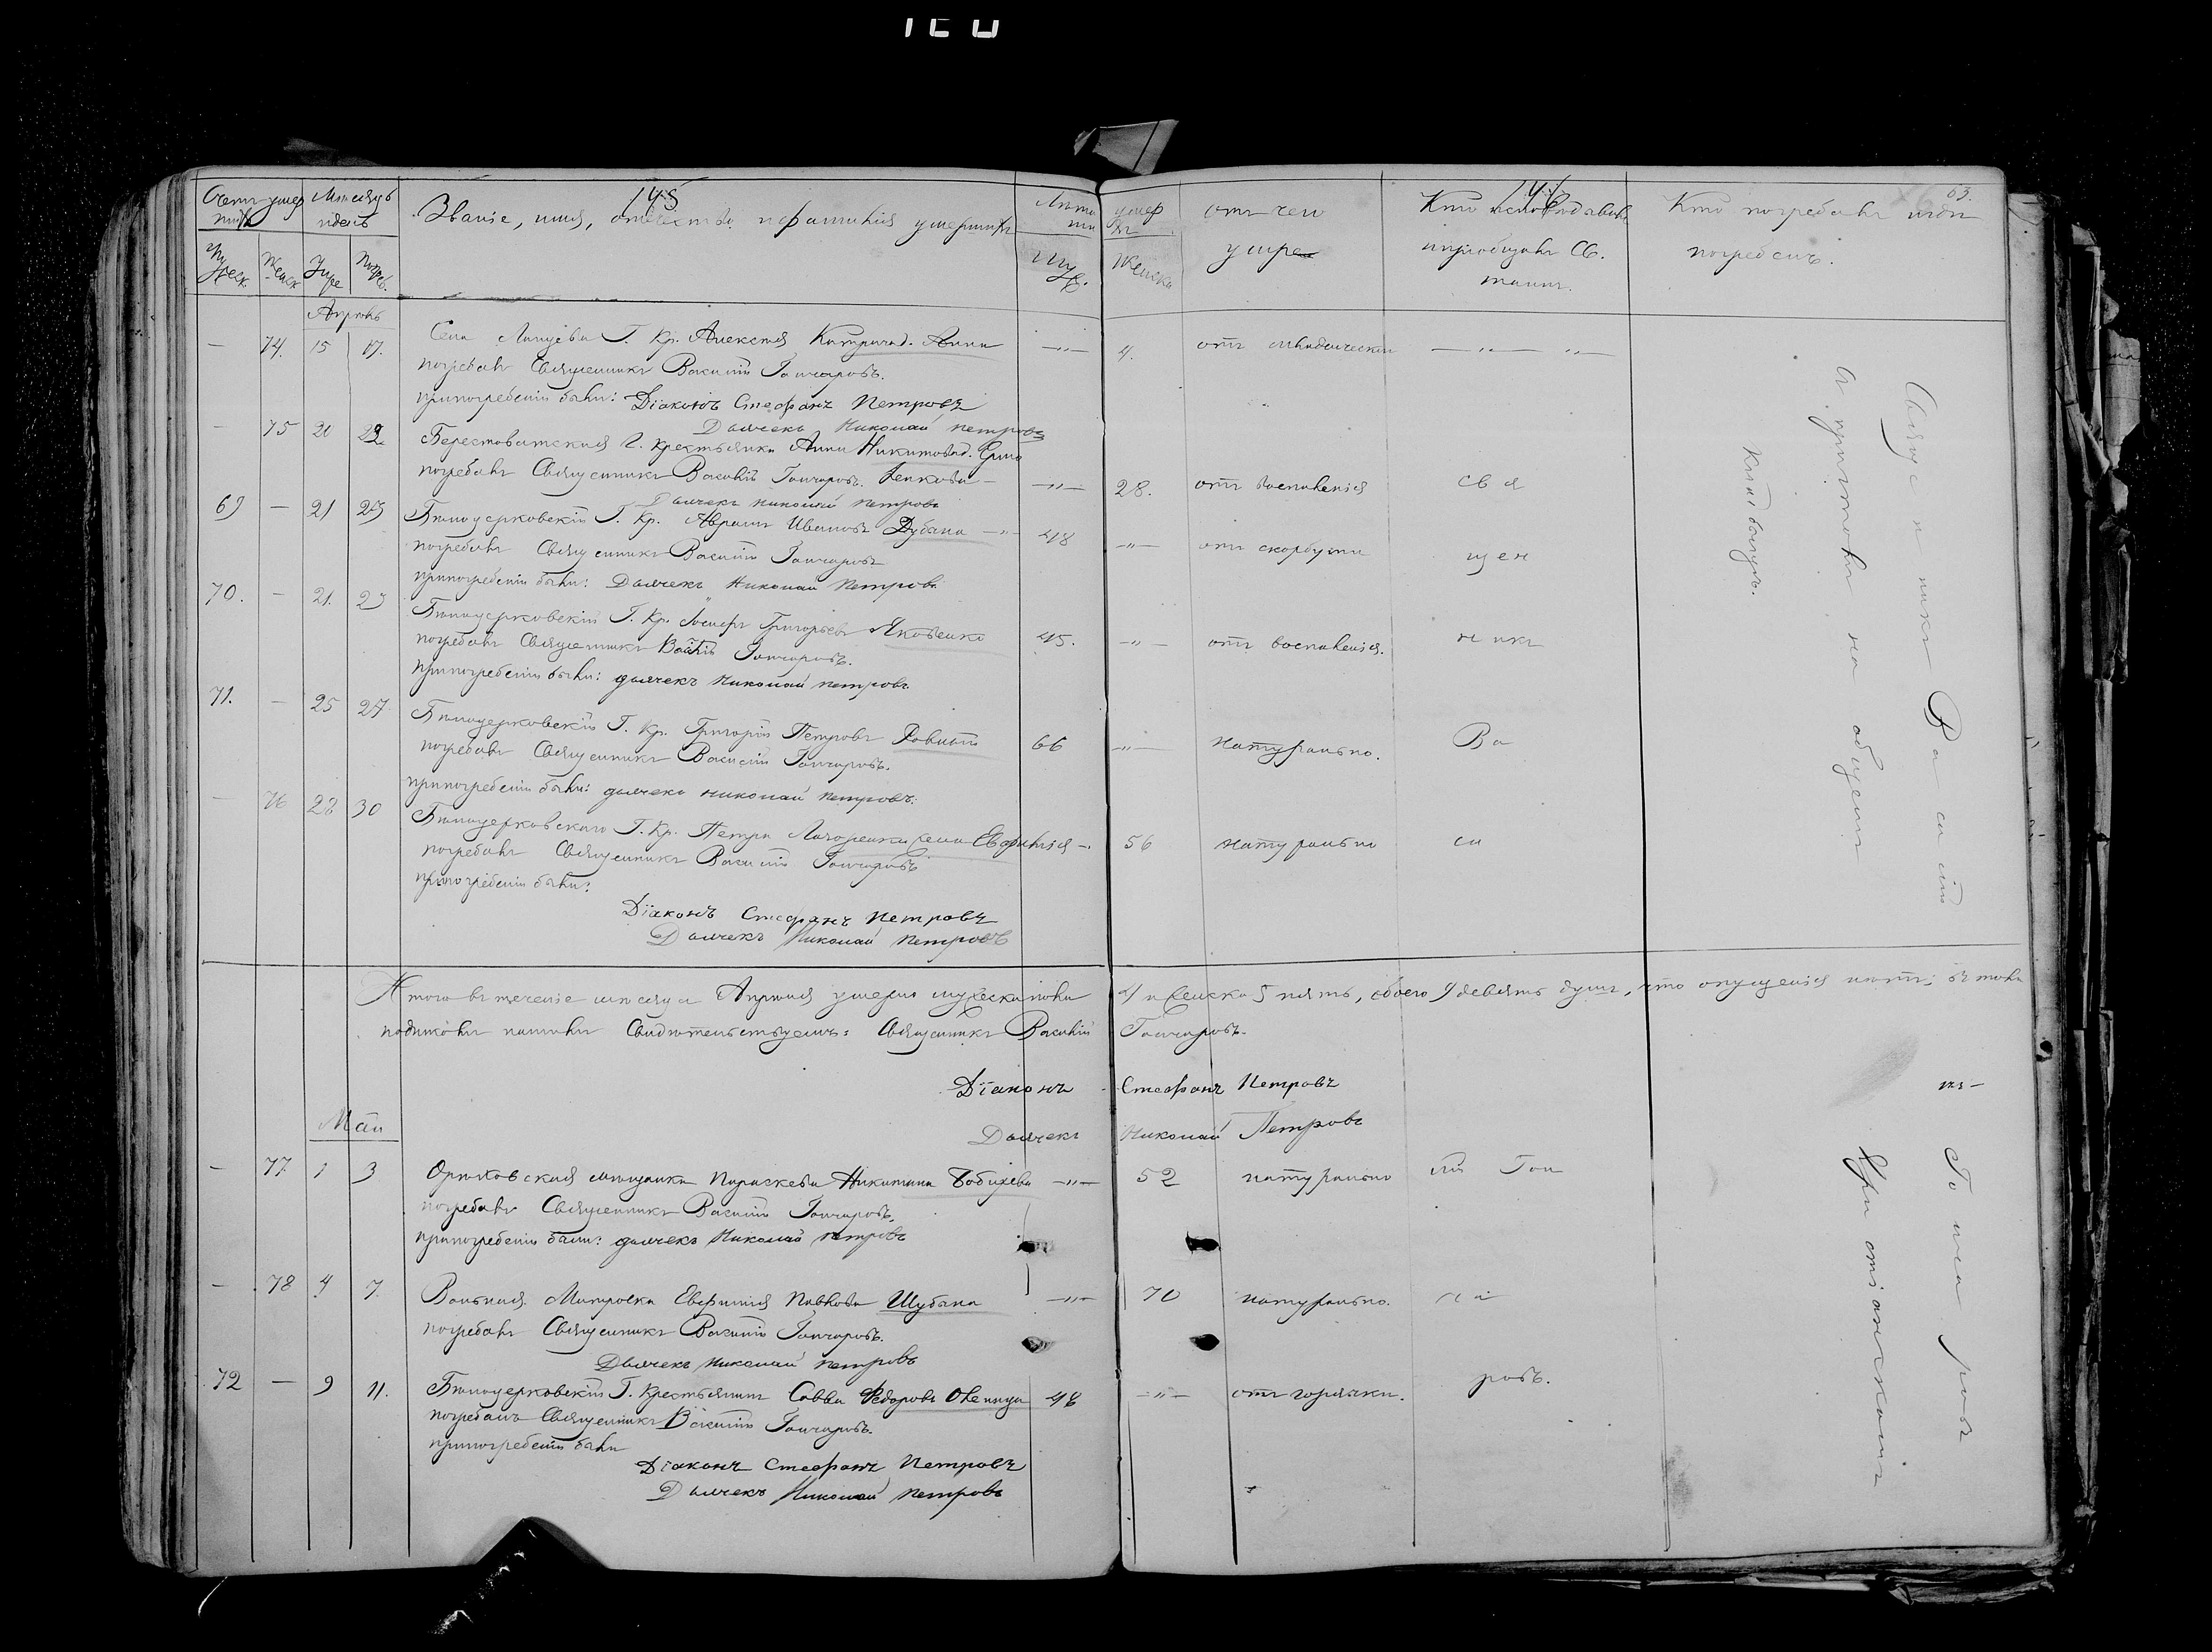 145
Счетъ умер Мѣсяцъ
шихъ и день
Званіе, имя, отчество и фамилія умершихъ
Лѣта умер
шихъ
отъ чего
умре
Кто исповѣдавалъ
и пріобщалъ Св.
таинъ.
Кто погребалъ и гдѣ
погребенъ.
63.
Мужеск. Женск Умре Погреб. Муж. Женска
Апрѣль
— 74. 15 17. Села Кр. Алексѣя Анна —"— 4. отъ младенческой —"— "—
погребалъ Священникъ Василій Гончаровъ.
припогребеніи были: Діаконъ Стефанъ Петровъ
Дьячекъ Николай Петровъ
— 75 20 22 Берестоватская Г. крестьянка Анна Никитова
погребалъ Священникъ Василій Гончаровъ. —"— 28. отъ воспаленія Свя
Дьячекъ Николай Петровъ
69 — 21 23 Бѣлоцерковскій Г. Кр. Аврамъ Ивановъ Дубина —"— 48 —"— отъ скорбута щен
погребалъ Священникъ Василій Гончаровъ
припогребеніи были: Дьячекъ Николай Петровъ
70. — 21. 23 Бѣлоцерковскій Г. Кр. Іосифъ Григорьевъ Яковенко 45. —"— отъ воспаленія. никъ
погребалъ Священникъ Василій Гончаровъ.
припогребеніи были: дьячекъ Николай Петровъ
71. — 25 27 Бѣлоцерковскій Г. Кр. Григорій Петровъ 66 —"— натурально. Ва
погребалъ Священникъ Василій Гончаровъ.
припогребеніи были: дьячекъ Николай Петровъ.
— 76 28 30 Бѣлоцерковскаго Г. Кр. Петра жена Евфимія — 56 натурально си
погребалъ Священникъ Василій Гончаровъ
припогребеніи были:
Діаконъ Стефанъ Петровъ
Дьячекъ Николай Петровъ
Итого въ теченіе мѣсяца Апрѣля умерло мужеска пола 4 и женска 5 пять, обоего 9 девять душъ, что опущенія нѣтъ; въ томъ
подписомъ нашимъ Свидѣтельствуемъ: Священникъ Василій Гончаровъ.
Діаконъ Стефанъ Петровъ
Дьячекъ Николай Петровъ
Май
— 77 1 3 Орѣховская мѣщанка Параскева Никитина —"— 52 натурально лій Гон
погребалъ Священникъ Василій Гончаровъ.
припогребеніи были: дьячекъ Николай Петровъ
— 78 4 7. Вольная Матроска Евфимія Павлова Шубина —"— 70 натурально. ча
погребалъ Священникъ Василій Гончаровъ.
Дьячекъ Николай Петровъ
72 — 9 11. Бѣлоцерковскій Г. Крестьянинъ Савва Федоровъ 48 —"— отъ горячки. ровъ.
погребалъ Священникъ Василій Гончаровъ.
припогребеніи были
Діаконъ Стефанъ Петровъ
Дьячекъ Николай Петровъ
Священникъ Василій Гончаровъ
на общемъ Христіанскомъ
кладбищѣ.